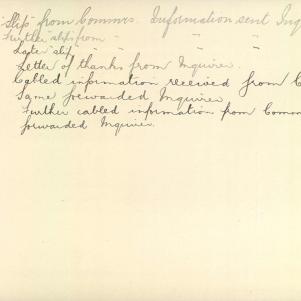 "Slip" from Commrs. Information sent Inq
Further slip from " " "
Later slip " "
Letter of thanks from Inquirer.
Cabled information received from C
Same forwarded Inquirer
Further cabled information from Comm
forwarded Inquirer.